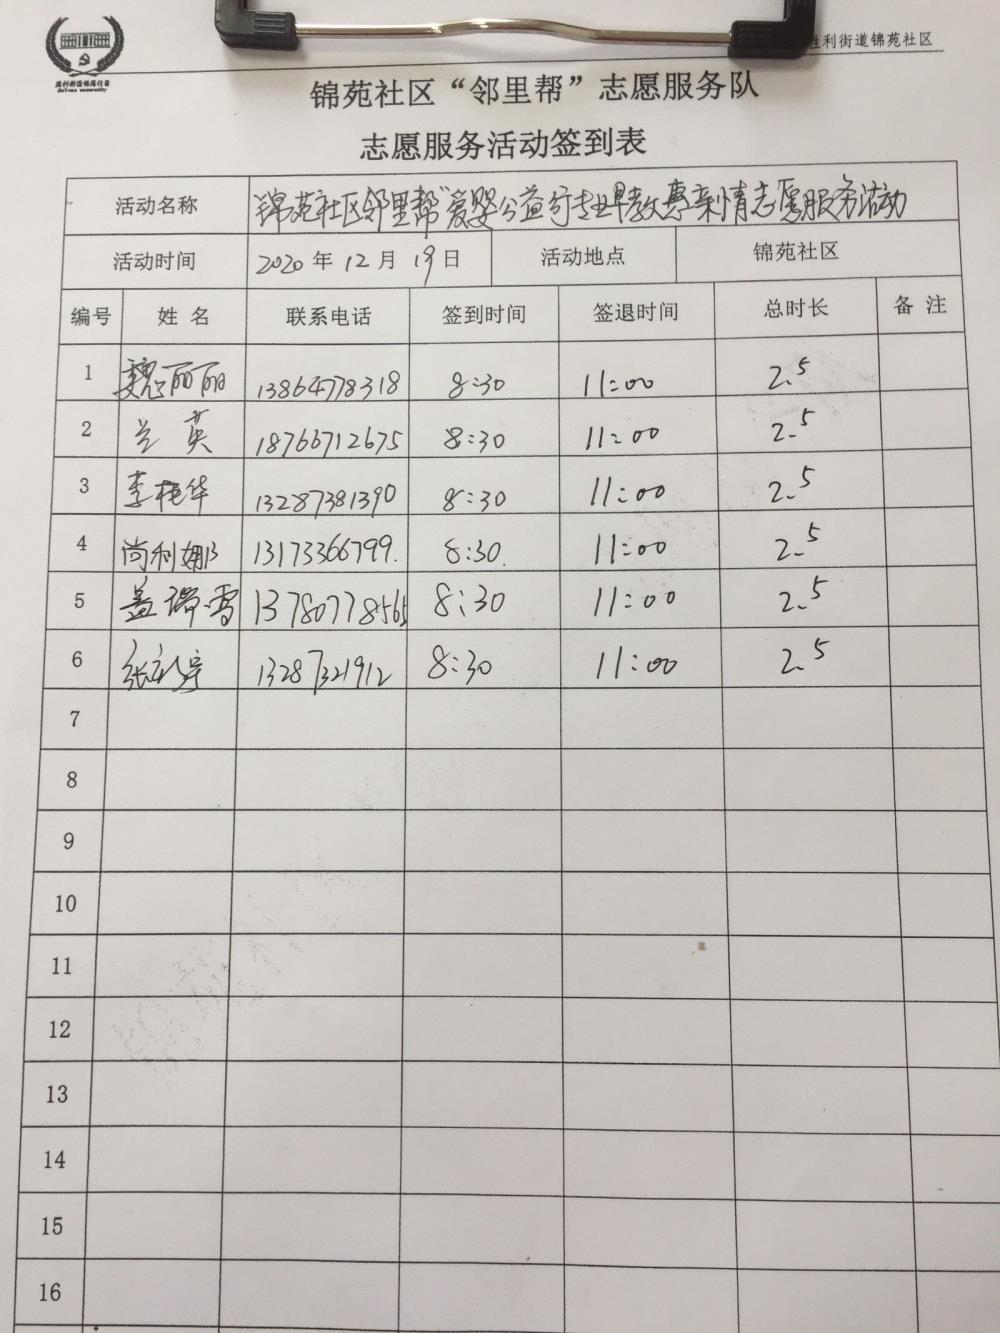 胜利街道锦苑社区
锦苑社区“邻里帮”志愿服务队
志愿服务活动签到表
活动名称 “锦苑社区邻里帮”爱婴公益行专业早教惠亲情志愿服务活动
活动时间 2020年12月19日 活动地点 锦苑社区
编号 姓名 联系电话 签到时间 签退时间 总时长 备注
1 魏丽丽 13864778318 8:30 11:00 2.5
2 兰英 18766712675 8:30 11:00 2.5
3 李艳华 13287381390 8:30 11:00 2.5
4 尚利娜 13173366799. 8:30. 11:00 2.5
5 盖瑞雪 13780778565 8:30 11:00 2.5
6 张 13287321912 8:30 11:00 2.5
7
8
9
10
11
12
13
14
15
16